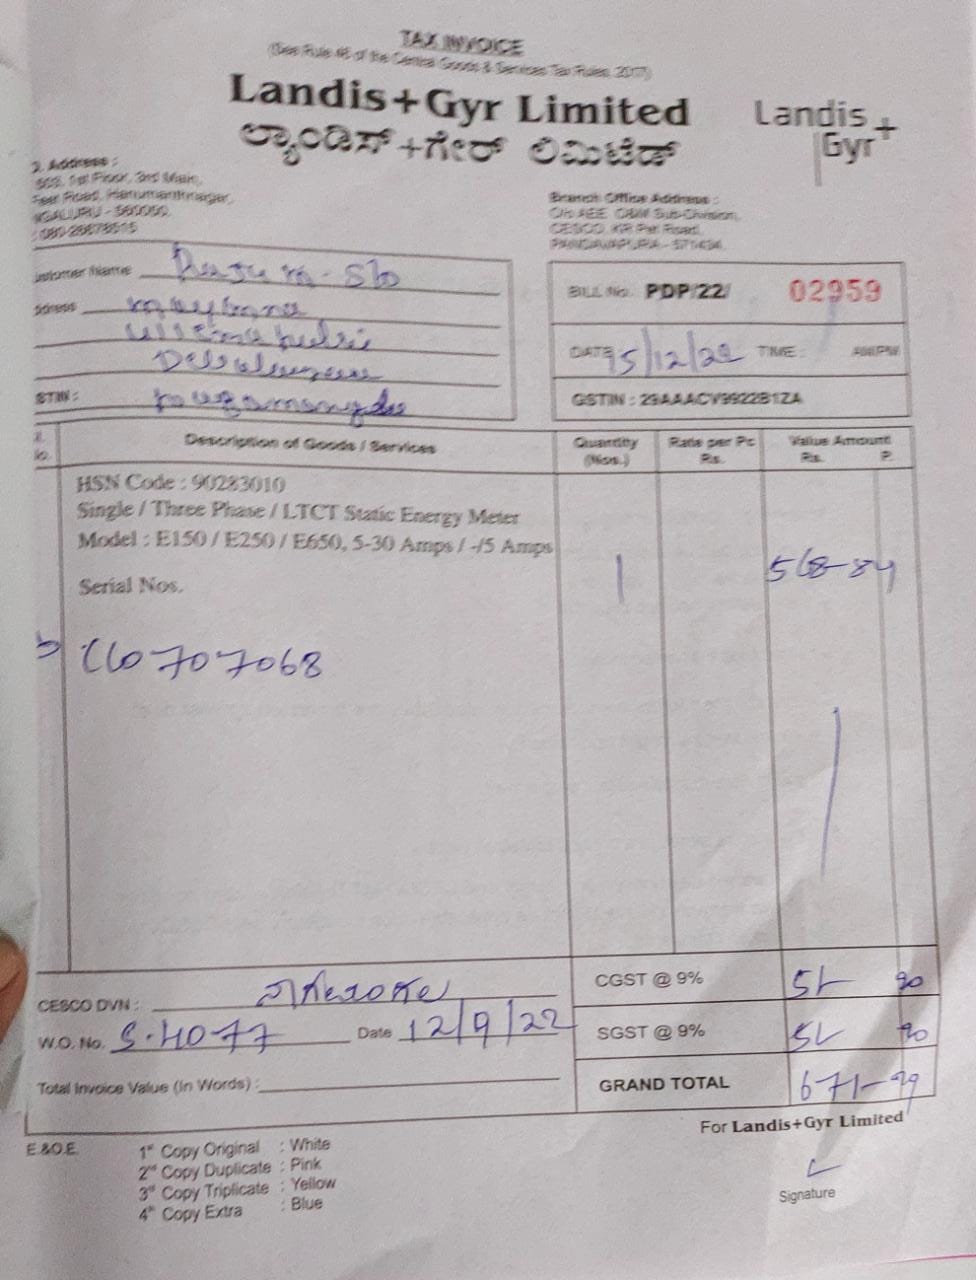 TAX INVOICE
(See Rule 46 of the Central Goods & Services Tax Rules, 2017)
Landis+Gyr Limited
ಲ್ಯಾಂಡಿಸ್+ಗೇರ್ ಲಿಮಿಟೆಡ್
Landis+
Gyr
Address :
1st Floor, 3rd Main,
Road, Hanumanthnagar,
Branch Office Address :
O/o AEE, O&M Sub-Division,
CESCO, KR Pet Road,
PANDAVAPURA - 571434.
ustomer Name Raju m- S/o
BILL No. PDP/22/ 02959
DATE 15/12/22 TIME : AM/PM
STIN :
GSTIN : 29AAACV9922B1ZA
Description of Goods / Services
Quantity (Nos.)
Rate per Pc Rs.
Value Amount Rs. P.
HSN Code : 90283010
Single / Three Phase / LTCT Static Energy Meter
Model : E150 / E250 / E650, 5-30 Amps / -/5 Amps
1
568-84
Serial Nos.
707068
CGST @ 9% 51 90
CESCO DVN :
SGST @ 9% 51 90
W.O. No. S.4077 Date 12/9/22
GRAND TOTAL 671-99
Total Invoice Value (In Words) :
For Landis+Gyr Limited
E.&O.E.
1st Copy Original : White
2nd Copy Duplicate : Pink
3rd Copy Triplicate : Yellow
4th Copy Extra : Blue
Signature